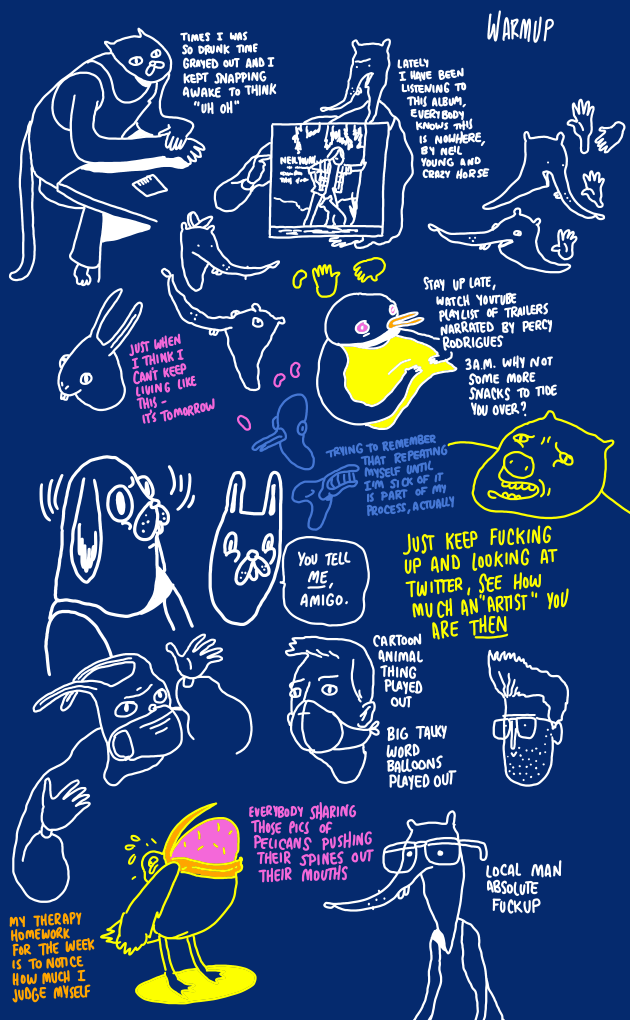 WARMUP
TIMES I WAS
SO DRUNK TIME
GRAYED OUT AND I
KEPT SNAPPING
AWAKE TO THINK
"UH OH"
LATELY
I HAVE BEEN
LISTENING TO
THIS ALBUM,
EVERYBODY
KNOWS THIS
IS NOWHERE,
BY NEIL
YOUNG AND
CRAZY HORSE
NEIL YOUNG
STAY UP LATE,
WATCH YOUTUBE
PLAYLIST OF TRAILERS
NARRATED BY PERCY
RODRIGUES
3A.M. WHY NOT
SOME MORE
SNACKS TO TIDE
YOU OVER?
JUST WHEN
I THINK I
CAN'T KEEP
LIVING LIKE
THIS -
IT'S TOMORROW
TRYING TO REMEMBER
THAT REPEATING
MYSELF UNTIL
I'M SICK OF IT
IS PART OF MY
PROCESS, ACTUALLY
JUST KEEP FUCKING
UP AND LOOKING AT
TWITTER, SEE HOW
MUCH AN "ARTIST" YOU
ARE THEN
YOU TELL
ME,
AMIGO.
CARTOON
ANIMAL
THING
PLAYED
OUT
BIG TALKY
WORD
BALLOONS
PLAYED OUT
EVERYBODY SHARING
THOSE PICS OF
PELICANS PUSHING
THEIR SPINES OUT
THEIR MOUTHS
LOCAL MAN
ABSOLUTE
FUCKUP
MY THERAPY
HOMEWORK
FOR THE WEEK
IS TO NOTICE
HOW MUCH I
JUDGE MYSELF